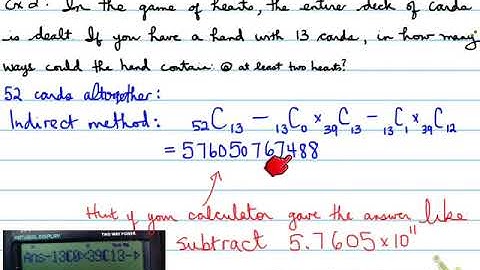 Ex 2: In the game of hearts, the entire deck of cards
is dealt If you have a hand with 13 cards, in how many
ways could the hand contain: @ at least two hearts?
52 cards altogether:
Indirect method: ₅₂C₁₃ − ₁₃C₀ × ₃₉C₁₃ − ₁₃C₁ × ₃₉C₁₂
= 576050767488
Hint if your calculator gave the answer like
subtract 5.7605 × 10¹¹
NATURAL DISPLAY TWO WAY POWER
Ans-13C0×39C13-